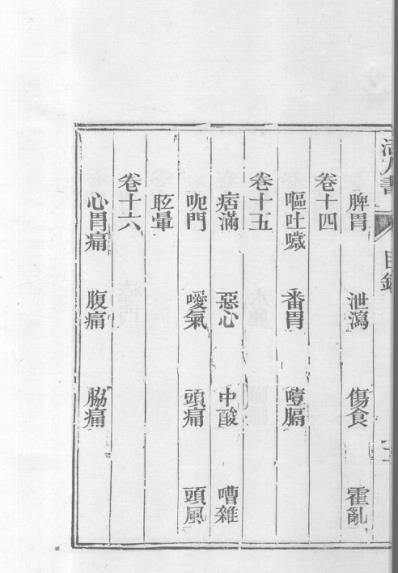 活人書 目錄
脾胃 泄瀉 傷食 霍亂
卷十四
嘔吐噦 番胃 噎膈
卷十五
痞滿 惡心 中酸 嘈雜
呃門 噯氣 頭痛 頭風
眩暈
卷十六
心胃痛 腹痛 脇痛